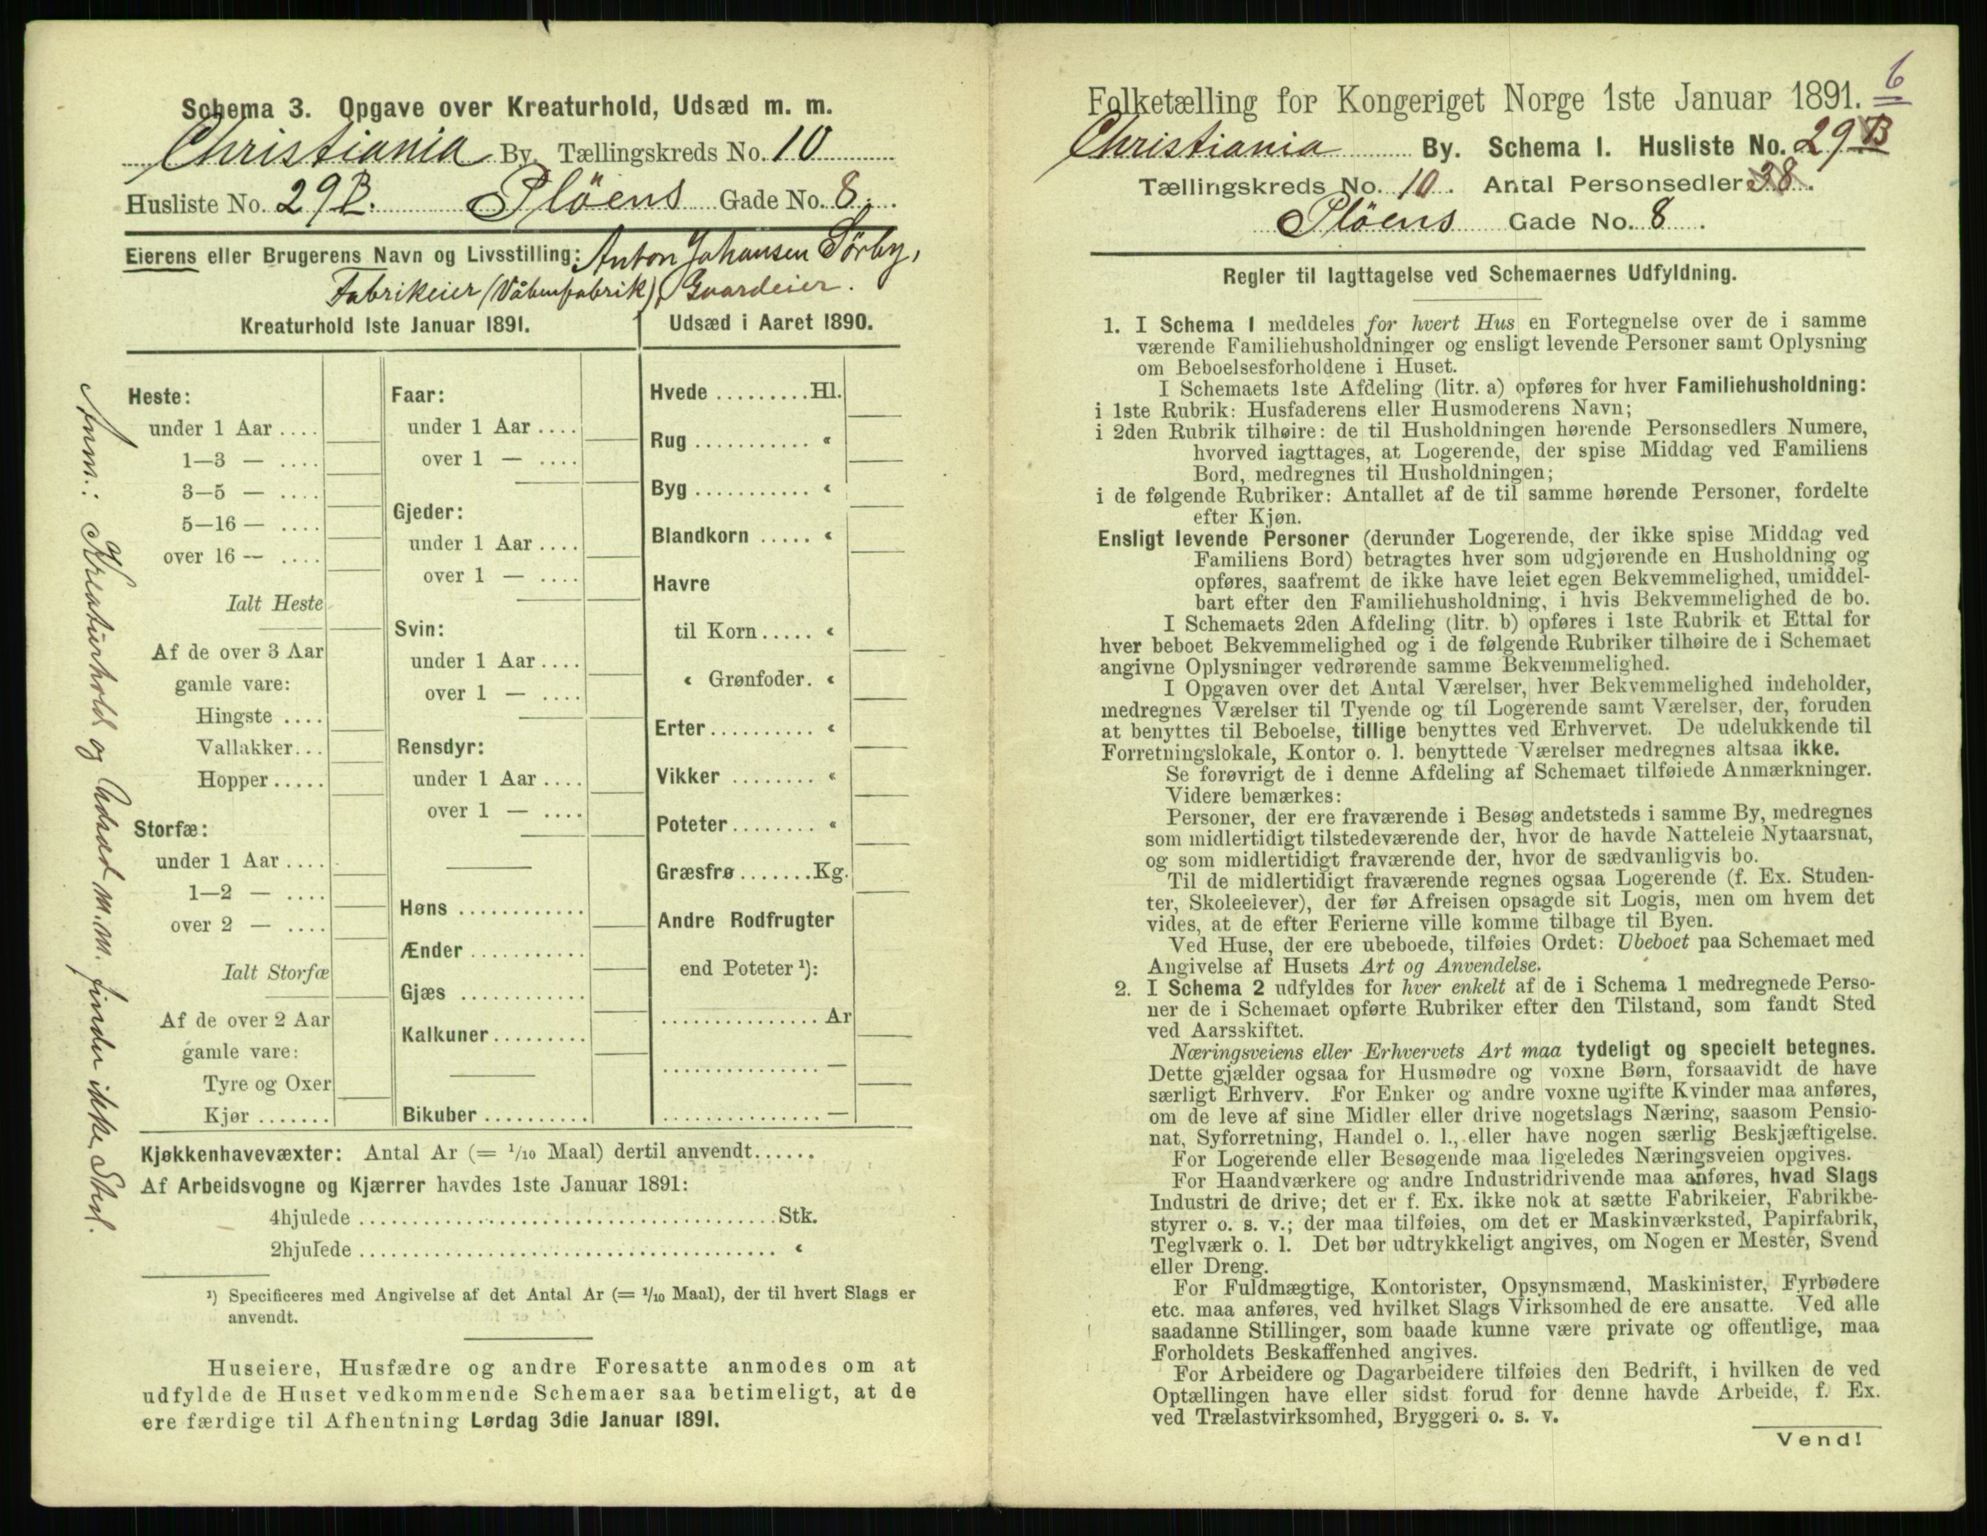 Schema 3. Opgave over Kreaturhold, Udsæd m. m.
Christiania By. Tællingskreds No. 10
Husliste No. 29B. Pløens Gade No. 8.
Eierens eller Brugerens Navn og Livsstilling: Anton Johansen Sørby,
Fabrikeier (Våbenfabrik), Gaardeier.
Kreaturhold 1ste Januar 1891.
Udsæd i Aaret 1890.
Heste:
under 1 Aar ....
1—3 — ....
3—5 — ....
5—16 — ....
over 16 — ....
Ialt Heste
Af de over 3 Aar
gamle vare:
Hingste ....
Vallakker...
Hopper.....
Storfæ:
under 1 Aar ....
1—2 — ....
over 2 — ....
Ialt Storfæ
Af de over 2 Aar
gamle vare:
Tyre og Oxer
Kjør .......
Faar:
under 1 Aar ....
over 1 — ....
Gjeder:
under 1 Aar ....
over 1 — ....
Svin:
under 1 Aar ....
over 1 — ....
Rensdyr:
under 1 Aar ....
over 1 — ....
Høns ............
Ænder ...........
Gjæs ............
Kalkuner.........
Bikuber ..........
Hvede .........Hl.
Rug ........... «
Byg ........... «
Blandkorn ..... «
Havre
til Korn..... «
« Grønfoder. «
Erter.......... «
Vikker ........ «
Poteter........ «
Græsfrø.......Kg.
Andre Rodfrugter
end Poteter ¹):
............... Ar
............... —
............... —
Anm.: Kreaturhold og Udsæd m. m. finder ikke Sted.
Kjøkkenhavevæxter: Antal Ar (= 1/10 Maal) dertil anvendt......
Af Arbeidsvogne og Kjærrer havdes 1ste Januar 1891:
4hjulede ........................................Stk.
2hjulede ........................................ «
¹) Specificeres med Angivelse af det Antal Ar (= 1/10 Maal), der til hvert Slags er
anvendt.
Huseiere, Husfædre og andre Foresatte anmodes om at
udfylde de Huset vedkommende Schemaer saa betimeligt, at de
ere færdige til Afhentning Lørdag 3die Januar 1891.
6
Folketælling for Kongeriget Norge 1ste Januar 1891.
Christiania By. Schema 1. Husliste No. 29B
Tællingskreds No. 10. Antal Personsedler 38.
Pløens Gade No. 8.
Regler til Iagttagelse ved Schemaernes Udfyldning.
1. I Schema 1 meddeles for hvert Hus en Fortegnelse over de i samme
værende Familiehusholdninger og ensligt levende Personer samt Oplysning
om Beboelsesforholdene i Huset.
I Schemaets 1ste Afdeling (litr. a) opføres for hver Familiehusholdning:
i 1ste Rubrik: Husfaderens eller Husmoderens Navn;
i 2den Rubrik tilhøire: de til Husholdningen hørende Personsedlers Numere,
hvorved iagttages, at Logerende, der spise Middag ved Familiens
Bord, medregnes til Husholdningen;
i de følgende Rubriker: Antallet af de til samme hørende Personer, fordelte
efter Kjøn.
Ensligt levende Personer (derunder Logerende, der ikke spise Middag ved
Familiens Bord) betragtes hver som udgjørende en Husholdning og
opføres, saafremt de ikke have leiet egen Bekvemmelighed, umiddel-
bart efter den Familiehusholdning, i hvis Bekvemmelighed de bo.
I Schemaets 2den Afdeling (litr. b) opføres i 1ste Rubrik et Ettal for
hver beboet Bekvemmelighed og i de følgende Rubriker tilhøire de i Schemaet
angivne Oplysninger vedrørende samme Bekvemmelighed.
I Opgaven over det Antal Værelser, hver Bekvemmelighed indeholder,
medregnes Værelser til Tyende og til Logerende samt Værelser, der, foruden
at benyttes til Beboelse, tillige benyttes ved Erhvervet. De udelukkende til
Forretningslokale, Kontor o. l. benyttede Værelser medregnes altsaa ikke.
Se forøvrigt de i denne Afdeling af Schemaet tilføiede Anmærkninger.
Videre bemærkes:
Personer, der ere fraværende i Besøg andetsteds i samme By, medregnes
som midlertidigt tilstedeværende der, hvor de havde Natteleie Nytaarsnat,
og som midlertidigt fraværende der, hvor de sædvanligvis bo.
Til de midlertidigt fraværende regnes ogsaa Logerende (f. Ex. Studen-
ter, Skoleelever), der før Afreisen opsagde sit Logis, men om hvem det
vides, at de efter Ferierne ville komme tilbage til Byen.
Ved Huse, der ere ubeboede, tilføies Ordet: Ubeboet paa Schemaet med
Angivelse af Husets Art og Anvendelse.
2. I Schema 2 udfyldes for hver enkelt af de i Schema 1 medregnede Perso-
ner de i Schemaet opførte Rubriker efter den Tilstand, som fandt Sted
ved Aarsskiftet.
Næringsveiens eller Erhvervets Art maa tydeligt og specielt betegnes.
Dette gjælder ogsaa for Husmødre og voxne Børn, forsaavidt de have
særligt Erhverv. For Enker og andre voxne ugifte Kvinder maa anføres,
om de leve af sine Midler eller drive nogetslags Næring, saasom Pensio-
nat, Syforretning, Handel o. l., eller have nogen særlig Beskjæftigelse.
For Logerende eller Besøgende maa ligeledes Næringsveien opgives.
For Haandværkere og andre Industridrivende maa anføres, hvad Slags
Industri de drive; det er f. Ex. ikke nok at sætte Fabrikeier, Fabrikbe-
styrer o. s. v.; der maa tilføies, om det er Maskinværksted, Papirfabrik,
Teglværk o. l. Det bør udtrykkeligt angives, om Nogen er Mester, Svend
eller Dreng.
For Fuldmægtige, Kontorister, Opsynsmænd, Maskinister, Fyrbødere
etc. maa anføres, ved hvilket Slags Virksomhed de ere ansatte. Ved alle
saadanne Stillinger, som baade kunne være private og offentlige, maa
Forholdets Beskaffenhed angives.
For Arbeidere og Dagarbeidere tilføies den Bedrift, i hvilken de ved
Optællingen have eller sidst forud for denne havde Arbeide, f. Ex.
ved Trælastvirksomhed, Bryggeri o. s. v.
Vend!